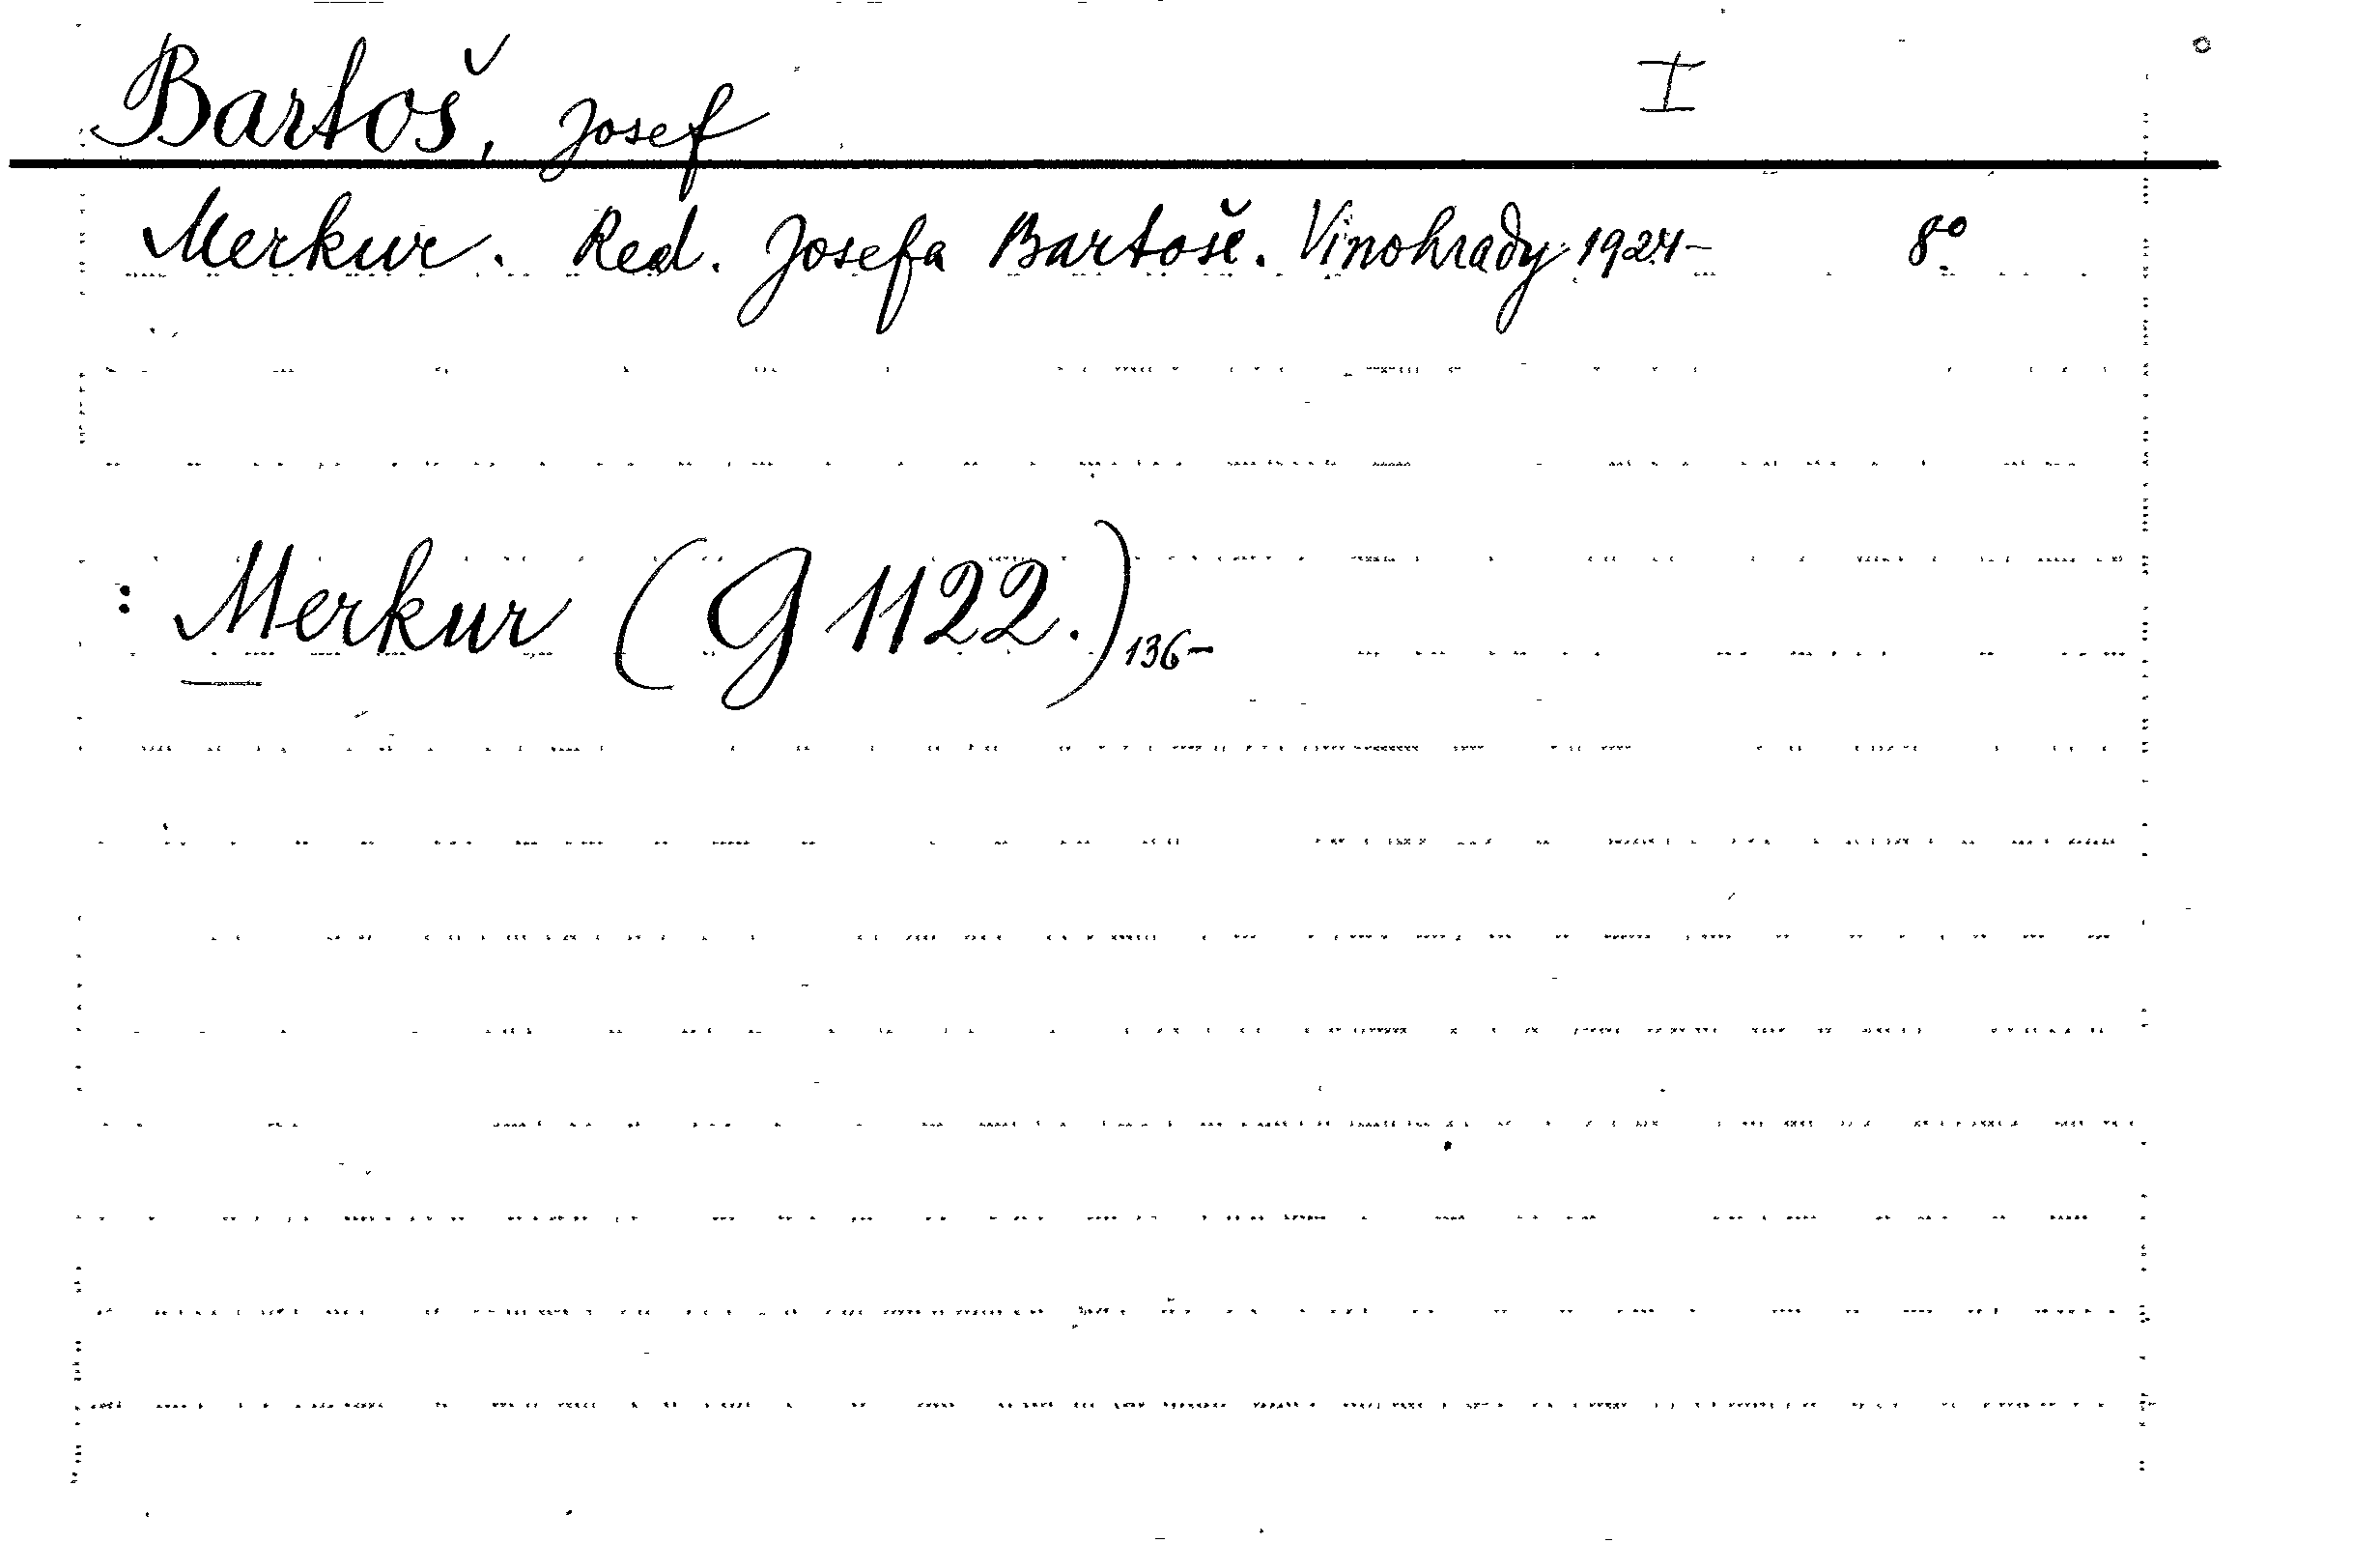 Bartoš, Josef I
Merkur. Red. Josefa Bartoše. Vinohrady 1924- 8°
: Merkur (G 1122.) 136-